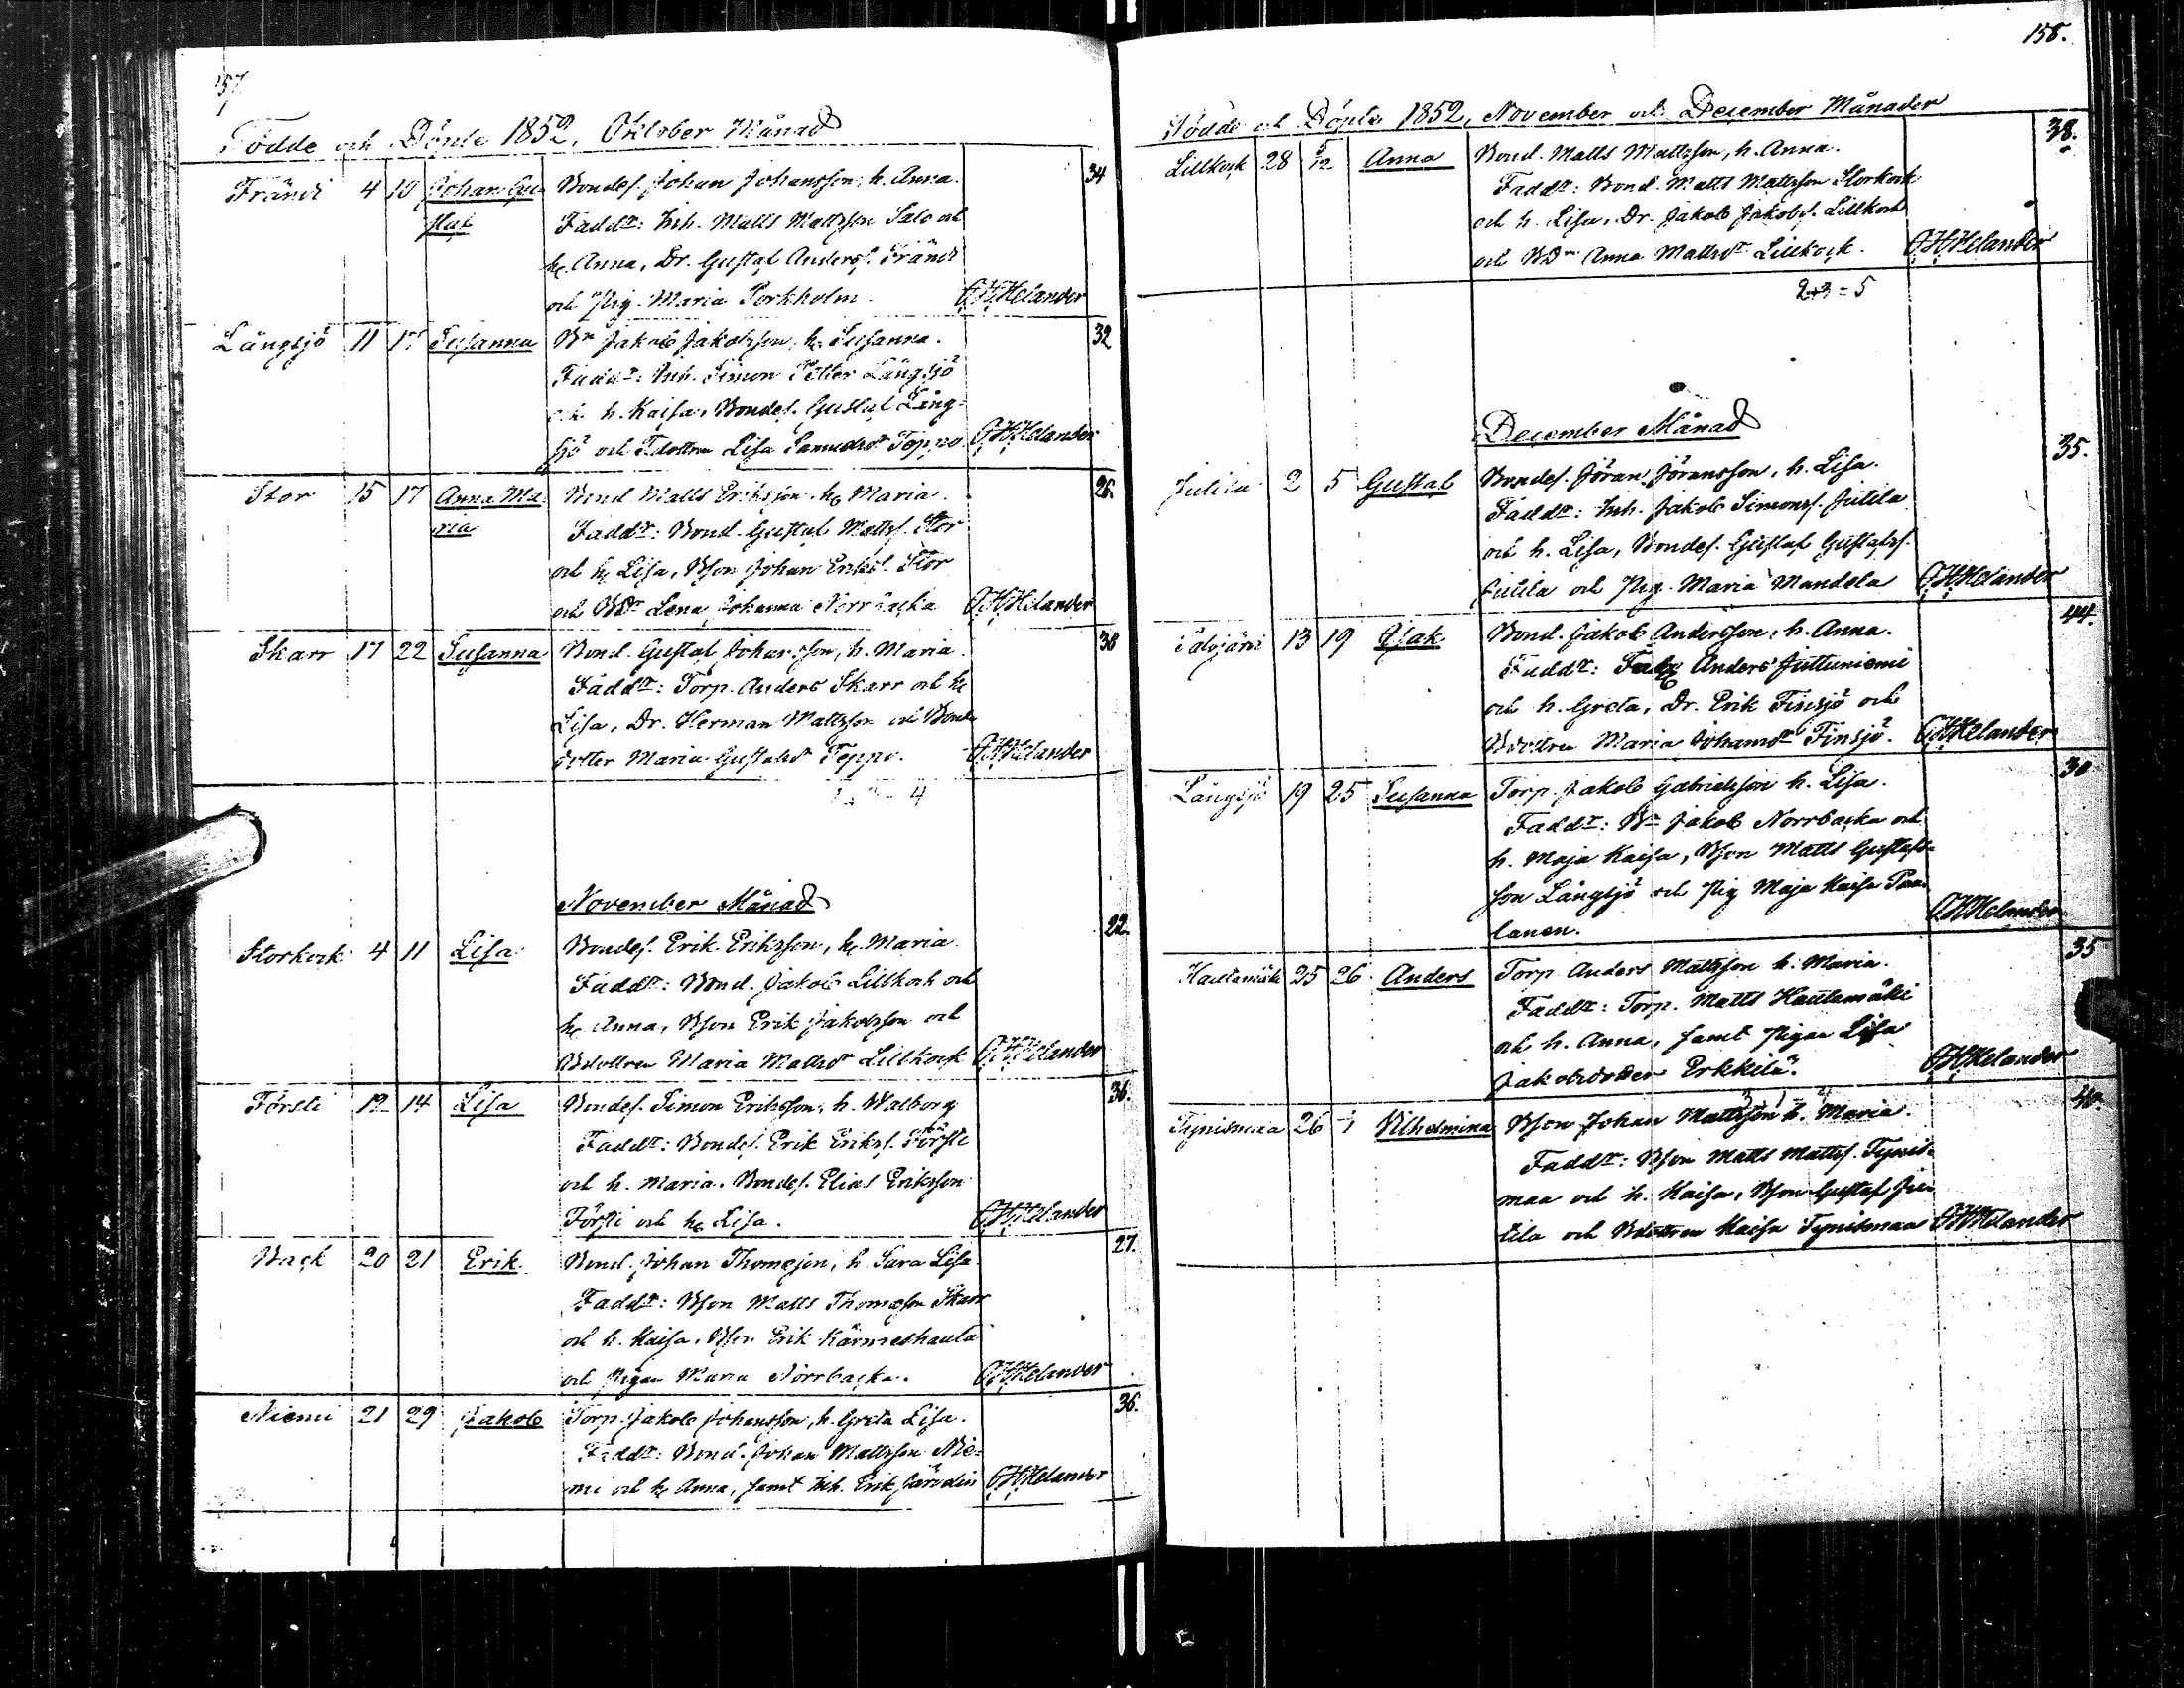 157.
Födde och Döpte 1852, Oktober Månad
Frändi 4 10 Johan Gu- Bondes. Johan Johansson, h. Anna. 34
staf Faddr: Inh. Matts Mattsson Salo och
h. Anna, Dr. Gustaf Anders. Frändi
och Pig. Maria Porkholm. C.H.Helander
Långsjö 11 17 Susanna Bn Jakob Jakobsson, h. Susanna. 32
Faddr: Inh. Simon Petter Långsjö
och h. Kaisa, Bondes. Gustaf Lång-
sjö och Bdottren Lisa Samuelsdr Teppo C.H.Helander
Stor 15 17 Anna Ma- Bond. Matts Eriksson, h. Maria. 26.
ria Faddr: Bond. Gustaf Matts. Stor
och h. Lisa, Bson Johan Eriks. Stor
och BDr Lena Johanna Norrbacka C.H.Helander
Skarr 17 22 Susanna Bond. Gustaf Johansson, h. Maria. 38
Faddr: Torp. Anders Skarr och h.
Lisa, Dr. Herman Mattsson och Bond-
dotter Maria Gustafsdr Teppo. C.H.Helander
4
November Månad
Storkock 4 11 Lisa Bondes. Erik Eriksson, h. Maria. 22.
Faddr: Bond. Jakob Lillkock och
h. Anna, Bson Erik Jakobsson och
Bdottren Maria Mattsdr Lillkock C.H.Helander
Försti 12 14 Lisa Bondes. Simon Eriksson, h. Walborg 36.
Faddr: Bondes. Erik Eriks. Försti
och h. Maria. Bondes. Elias Eriksson
Försti och h. Lisa. C.H.Helander
Back 20 21 Erik Bond. Johan Thomeson, h. Sara Lisa. 27.
Faddr: Bson Matts Thomeson Skarr
och h. Kaisa, Bson Erik Kärmeshauta
och pigan Maria Norrbacka. C.H.Helander
Niemi 21 29 Jakob Torp. Jakob Johansson, h. Greta Lisa. 36.
Faddr: Bond. Johan Mattsson Nie-
mi och h. Anna, samt Inh. Erik C.H.Helander
158.
Födde och Döpte 1852, November och December Månader
Lillkock 28 5/12 Anna Bond. Matts Mattsson, h. Anna. 38.
Faddr: Bond. Matts Mattsson Storkock
och h. Lisa, Dr. Jakob Jakobs. Lillkock
och BDr Anna Mattsdr Lillkock. C.H.Helander
2+3=5
December Månad
Jutila 2 5 Gustaf Bondes. Jöran Jöransson, h. Lisa. 35.
Faddr: Inh. Jakob Simons. Jutila
och h. Lisa, Bondes. Gustaf Gustafs.
Jutila och Pig. Maria Mandela C.H.Helander
13 19 Isak Bond. Jakob Andersson, h. Anna. 44.
Faddr: Anders Juttuniemi
och h. Greta, Dr. Erik Finsjö och
Bdottren Maria Johansdr Finsjö. C.H.Helander
Långsjö 19 25 Susanna Torp. Jakob Gabrielsson h. Lisa. 30
Faddr: Bn Jakob Norrbacka och
h. Maja Kaisa, Bson Matts Gustafs-
son Långsjö och Pig Maja Kaisa Paa-
lanen. C.H.Helander
Hautamäki 25 26 Anders Torp. Anders Mattsson h. Maria. 35
Faddr: Torp. Matts Hautamäki
och h. Anna, samt Pigan Lisa
Jakobsdotter Erkkilä. C.H.Helander
Tynismaa 26 Vilhelmina Bson Johan Mattsson h. Maria. 40.
Faddr: Bson Matts Matts. Tynis-
maa och h. Kaisa, Bson Gustaf Ju-
tila och Bdottren Kaisa Tynismaa C.H.Helander